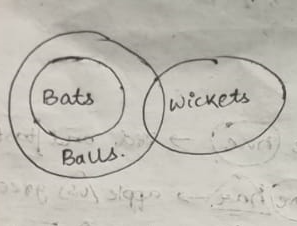 Bats
Wickets
Balls.